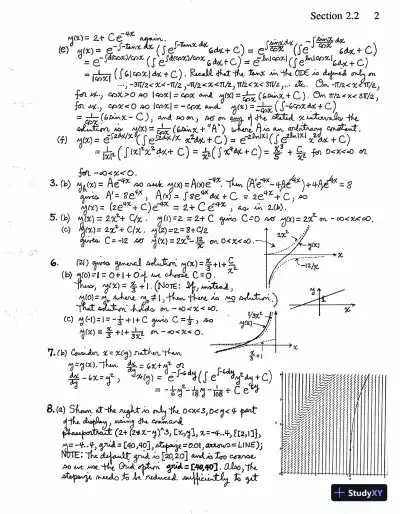 Section 2.2 2
y(x) = 2 + Ce^{-4x} again.
(e) y(x) = e^{-∫-tanx dx}(∫e^{∫-tanx dx} 6dx + C) = e^{∫\frac{sinx}{cosx}dx}(∫e^{-∫\frac{sinx}{cosx}dx} 6dx + C)
= \frac{1}{|cosx|}(∫6|cosx|dx + C). Recall that the tanx in the ODE is defined only on
..., -3π/2<x<-π/2, -π/2<x<π/2, π/2<x<3π/2, ... etc. On -π/2<x<π/2,
for ex., cosx>0 so |cosx| = cosx and y(x) = \frac{1}{cosx}(6sinx + C). On π/2<x<3π/2,
for ex., cosx<0 so |cosx| = -cosx and y(x) = \frac{1}{-cosx}(∫-6cosxdx + C)
= \frac{1}{cosx}(6sinx - C), and so on, so on any of the stated x intervals the
solution is y(x) = \frac{1}{cosx}(6sinx + "A") where A is an arbitrary constant.
for -∞<x<0.
3. (b) y_h(x) = Ae^{-4x} so seek y(x) = A(x)e^{-4x}. Then (A'e^{-4x} - 4Ae^{-4x}) + 4Ae^{-4x} = 8
gives A' = 8e^{4x}, A(x) = ∫8e^{4x}dx + C = 2e^{4x} + C, so
y(x) = (2e^{4x} + C)e^{-4x} = 2 + Ce^{-4x}, as in 2(b).
5. (b) y(x) = 2x² + C/x. y(1) = 2 = 2 + C gives C=0 so y(x) = 2x² on -∞<x<∞.
(c) y(x) = 2x² + C/x. y(2) = 2 = 8 + C/2
gives C = -12 so y(x) = 2x² - \frac{12}{x} on 0<x<∞.
2x²
y(x)
-12/x
6. (21) gives general solution y(x) = \frac{x}{3} + 1 + \frac{C}{x²}
(b) y(0) = 1 = 0 + 1 + 0 if we choose C = 0.
Thus, y(x) = \frac{x}{3} + 1. (NOTE: If, instead,
y(0) = y₀ where y₀ ≠ 1, then there is no solution.)
That solution holds on -∞<x<∞.
(c) y(-1) = 1 = -\frac{1}{3} + 1 + C gives C = \frac{1}{3}, so
y(x) = \frac{x}{3} + 1 + \frac{1}{3x²} on -∞<x<0.
1/3x²
y(x)
\frac{x}{3}+1
7. (b) Consider x = x(y) rather than
y = y(x). Then \frac{dx}{dy} = 6x + y² or
\frac{dx}{dy} - 6x = y², x(y) = e^{-∫-6dy}(∫e^{∫-6dy} y²dy + C)
= -\frac{1}{6}y² - \frac{1}{18}y - \frac{1}{108} + Ce^{6y}
8. (a) Shown at the right is only the 0<x<3, 0<y<4 part
of the display, using the command
phaseportrait (2+(2*x-y)^3, [x,y], x=-4..4, {[2,1]},
y=-4..4, grid=[40,40], stepsize=0.01, arrows=LINE);
NOTE: The default grid is [20,20] and is too coarse
so we use the Grid option grid=[40,40]. Also, the
stepsize needs to be reduced sufficiently to get
StudyXY